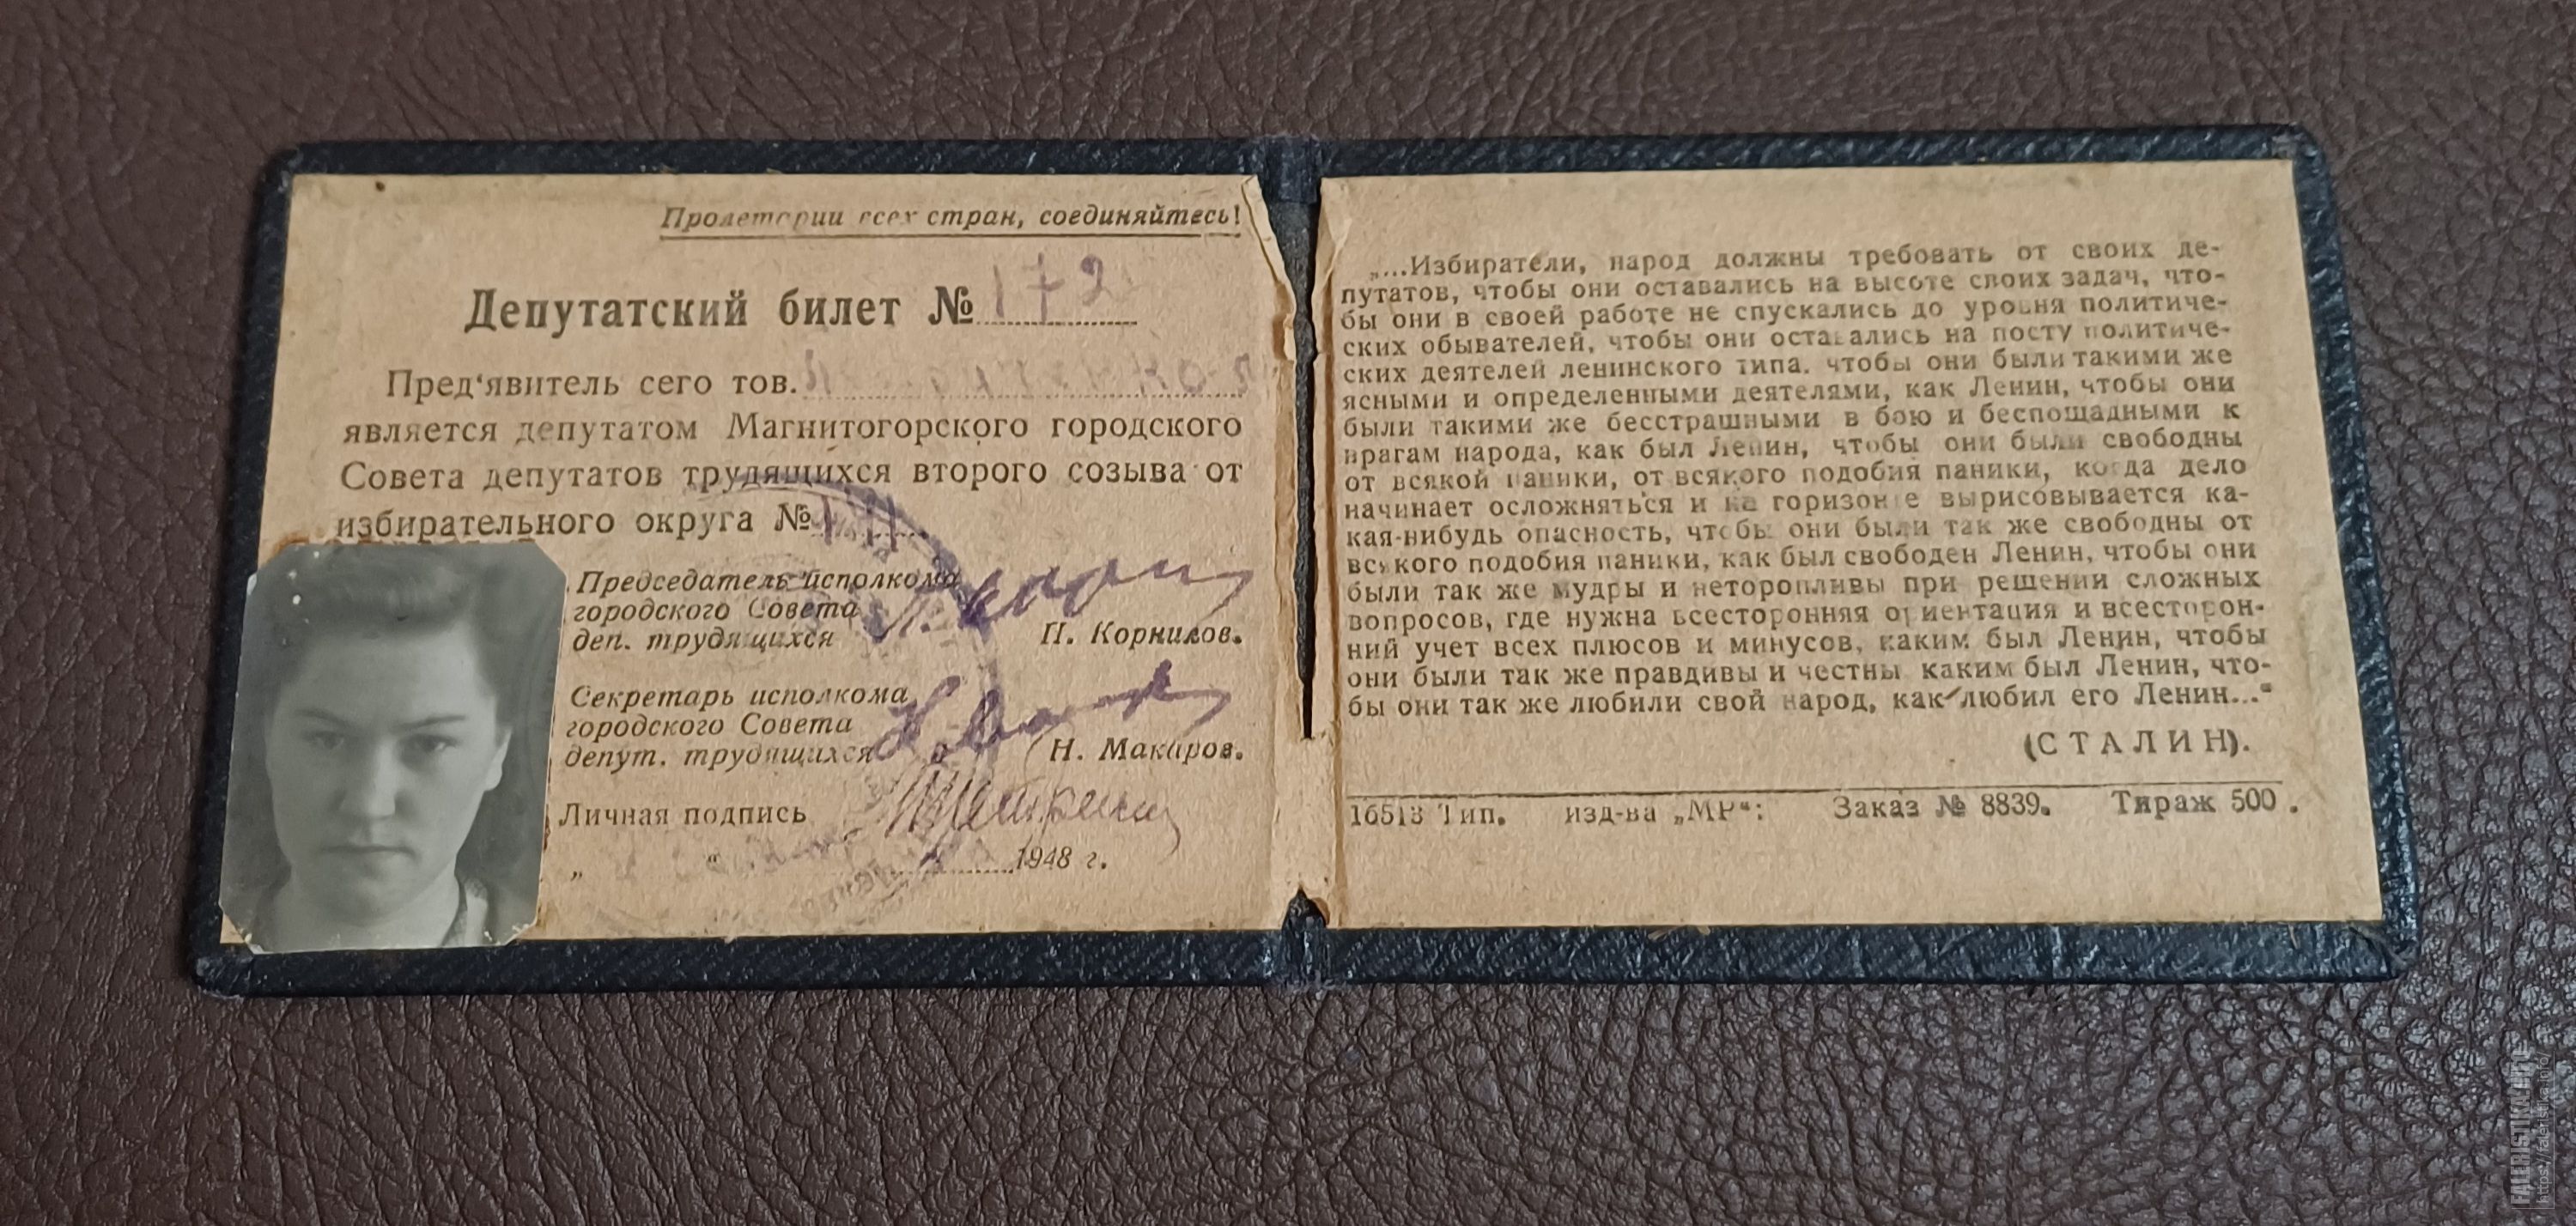 Пролетарии всех стран, соединяйтесь!
Депутатский билет № 172
Пред‘явитель сего тов.
является депутатом Магнитогорского городского
Совета депутатов трудящихся второго созыва от
избирательного округа №
Председатель исполкома
городского Совета
деп. трудящихся П. Корнилов.
Секретарь исполкома
городского Совета
депут. трудящихся Н. Макаров.
Личная подпись
„ “ 1948 г.
„...Избиратели, народ должны требовать от своих де-
путатов, чтобы они оставались на высоте своих задач, что-
бы они в своей работе не спускались до уровня политиче-
ских обывателей, чтобы они оставались на посту политиче-
ских деятелей ленинского типа. чтобы они были такими же
ясными и определенными деятелями, как Ленин, чтобы они
были такими же бесстрашными в бою и беспощадными к
врагам народа, как был Ленин, чтобы они были свободны
от всякой паники, от всякого подобия паники, когда дело
начинает осложняться и на горизонте вырисовывается ка-
кая-нибудь опасность, чтобы они были так же свободны от
всякого подобия паники, как был свободен Ленин, чтобы они
были так же мудры и неторопливы при решении сложных
вопросов, где нужна всесторонняя ориентация и всесторон-
ний учет всех плюсов и минусов, каким был Ленин, чтобы
они были так же правдивы и честны каким был Ленин, что-
бы они так же любили свой народ, как любил его Ленин...“
(СТАЛИН).
16513 Тип. изд-ва „МР“: Заказ № 8839. Тираж 500.
FALERISTIKA.INFO
https://faleristika.info/